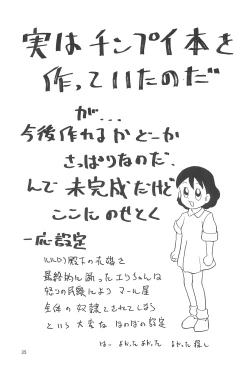 実は チンプイ本を
作っていたのだ
が...
今後作れるかどーか
さっぱりなのだ.
んで 未完成だけど
ここにのせとく
一応設定
ルルロフ殿下の花嫁を
最終的に断ったエリちゃんは
怒りの民衆により マール星
全体の奴隷とされてしまう
という 大変な ほのぼの設定
はー よかったよかった
35